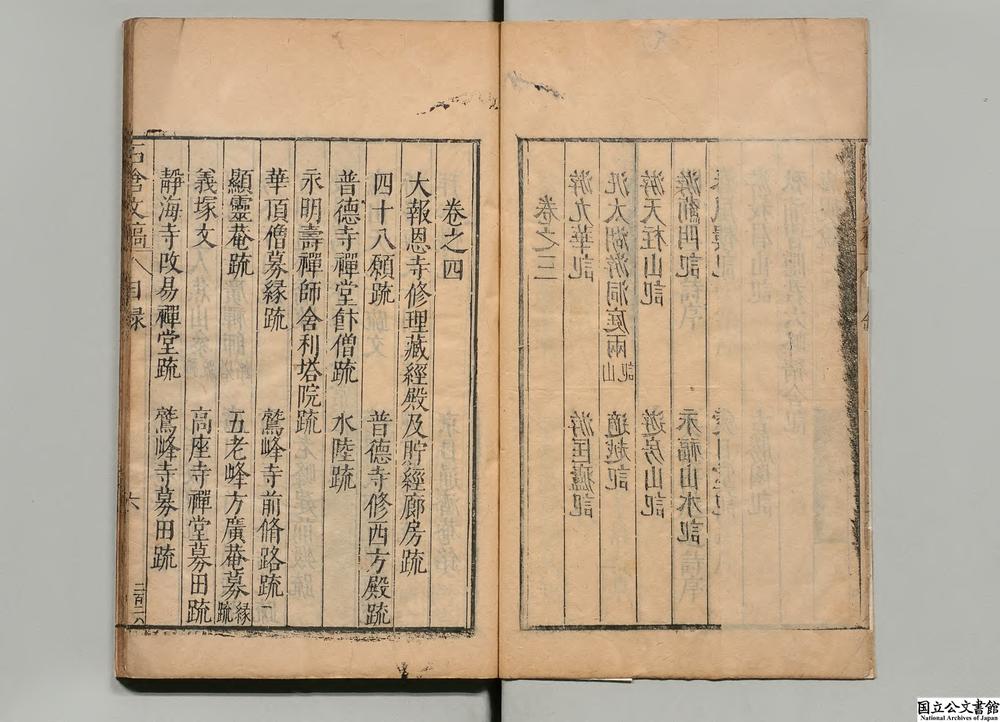 卷之三
游九華記　游匡廬記
汎太湖游洞庭兩山記　適越記
游天柱山記　遊房山記
游薊門記　永福山水記
卷之四
大報恩寺修理藏經殿及貯經廊房疏
四十八願疏　普德寺修西方殿疏
普德寺禪堂飰僧疏　水陸疏
永明壽禪師舍利塔院疏
華頂僧募緣疏　鷲峰寺前脩路疏
顯靈菴疏　五老峰方廣菴募緣疏
義塚文　高座寺禪堂募田疏
靜海寺改易禪堂疏　鷲峰寺募田疏
石倉文稿　目録　六
国立公文書館
National Archives of Japan